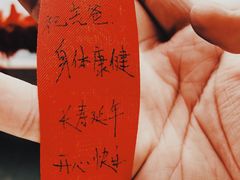 祝老爸
身体康健
长寿延年
开心快乐